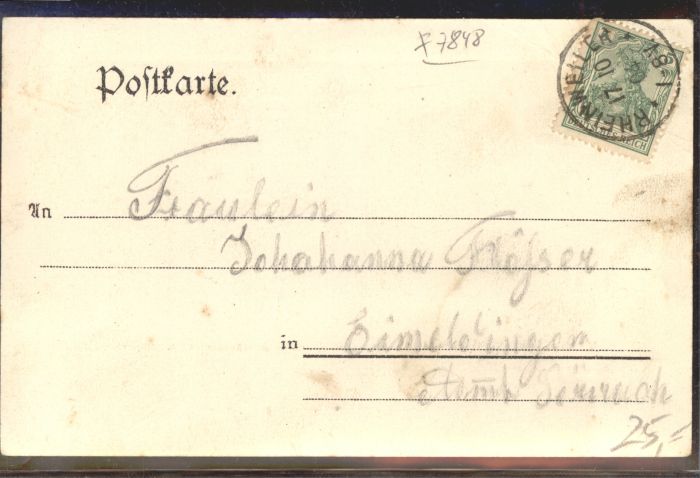 F7848
Postkarte.
RHEINWEILER 17 10
DEUTSCHES REICH
An Fräulein
Johahanna
in Eimeldingen
Amt Lörrach
25,=